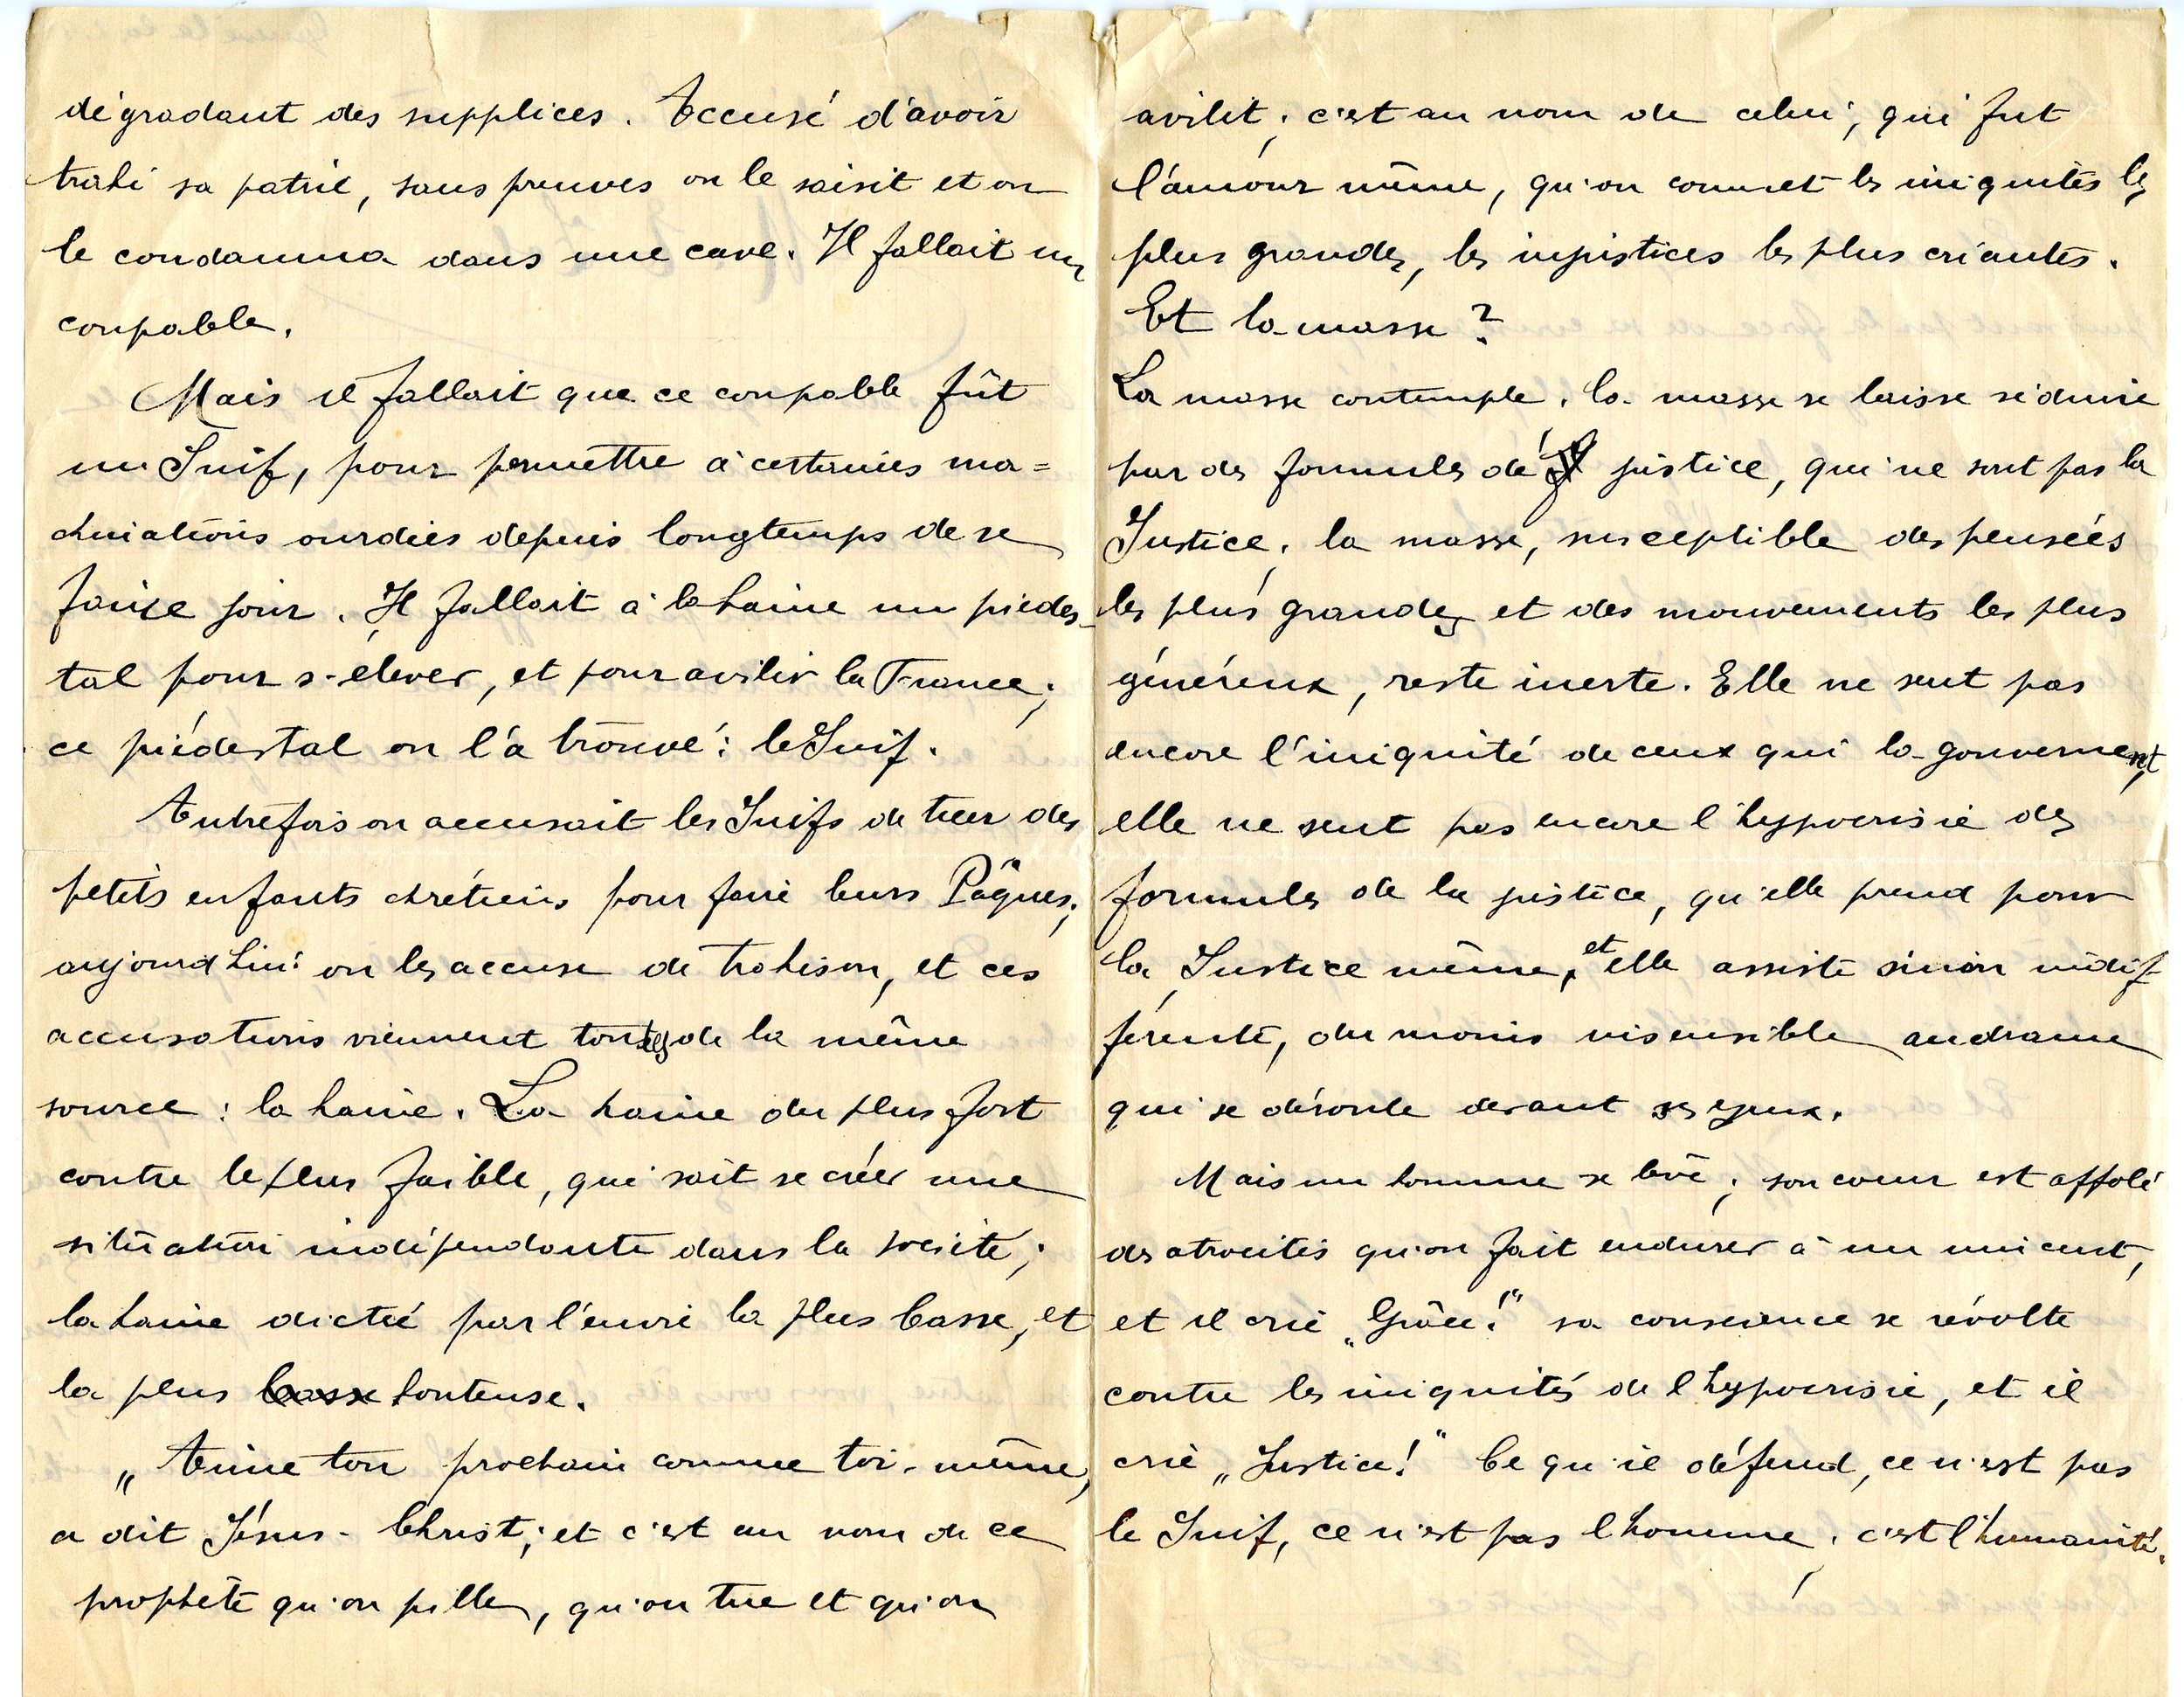 dégradant des supplices. Accusé d'avoir
trahi sa patrie, sans preuves on le saisit et on
le condamna dans une cave. Il fallait un
coupable.
Mais il fallait que ce coupable fût
un Juif, pour permettre à certaines ma=
chinations ourdies depuis longtemps de se
faire jour. Il fallait à la haine un piédes-
tal pour s'élever, et pour avilir la France;
ce piédestal on l'a trouvé: le Juif.
Autrefois on accusait les Juifs de tuer des
petits enfants chrétiens pour faire leurs Pâques;
aujourd'hui on les accuse de trahison, et ces
accusations viennent toutes de la même
source: la haine. La haine du plus fort
contre le plus faible, qui sait se créer une
situation indépendante dans la société;
la haine dictée par l'envie la plus basse, et
la plus basse honteuse.
„Aime ton prochain comme toi-même,
a dit Jésus-Christ; et c'est au nom de ce
prophète qu'on pille, qu'on tue et qu'on
avilit; c'est au nom de celui, qui fut
l'amour même, qu'on commet les iniquités les
plus grandes, les injustices les plus criantes.
Et la masse?
La masse contemple; la masse se laisse séduire
par des formules de justice, qui ne sont pas la
Justice; la masse, susceptible des pensées
les plus grandes et des mouvements les plus
généreux, reste inerte. Elle ne sent pas
encore l'iniquité de ceux qui la gouvernent,
elle ne sent pas encore l'hypocrisie des
formules de la justice, qu'elle prend pour
la Justice même, et elle assiste sinon indif-
férente, du moins insensible au drame
qui se déroule devant ses yeux.
Mais un homme se lève; son coeur est affolé
des atrocités qu'on fait endurer à un inicent,
et il crie „Grâce!" sa conscience se révolte
contre les iniquités de l'hypocrisie, et il
crie „Justice!" Ce qu'il défend, ce n'est pas
le Juif, ce n'est pas l'homme; c'est l'humanité.